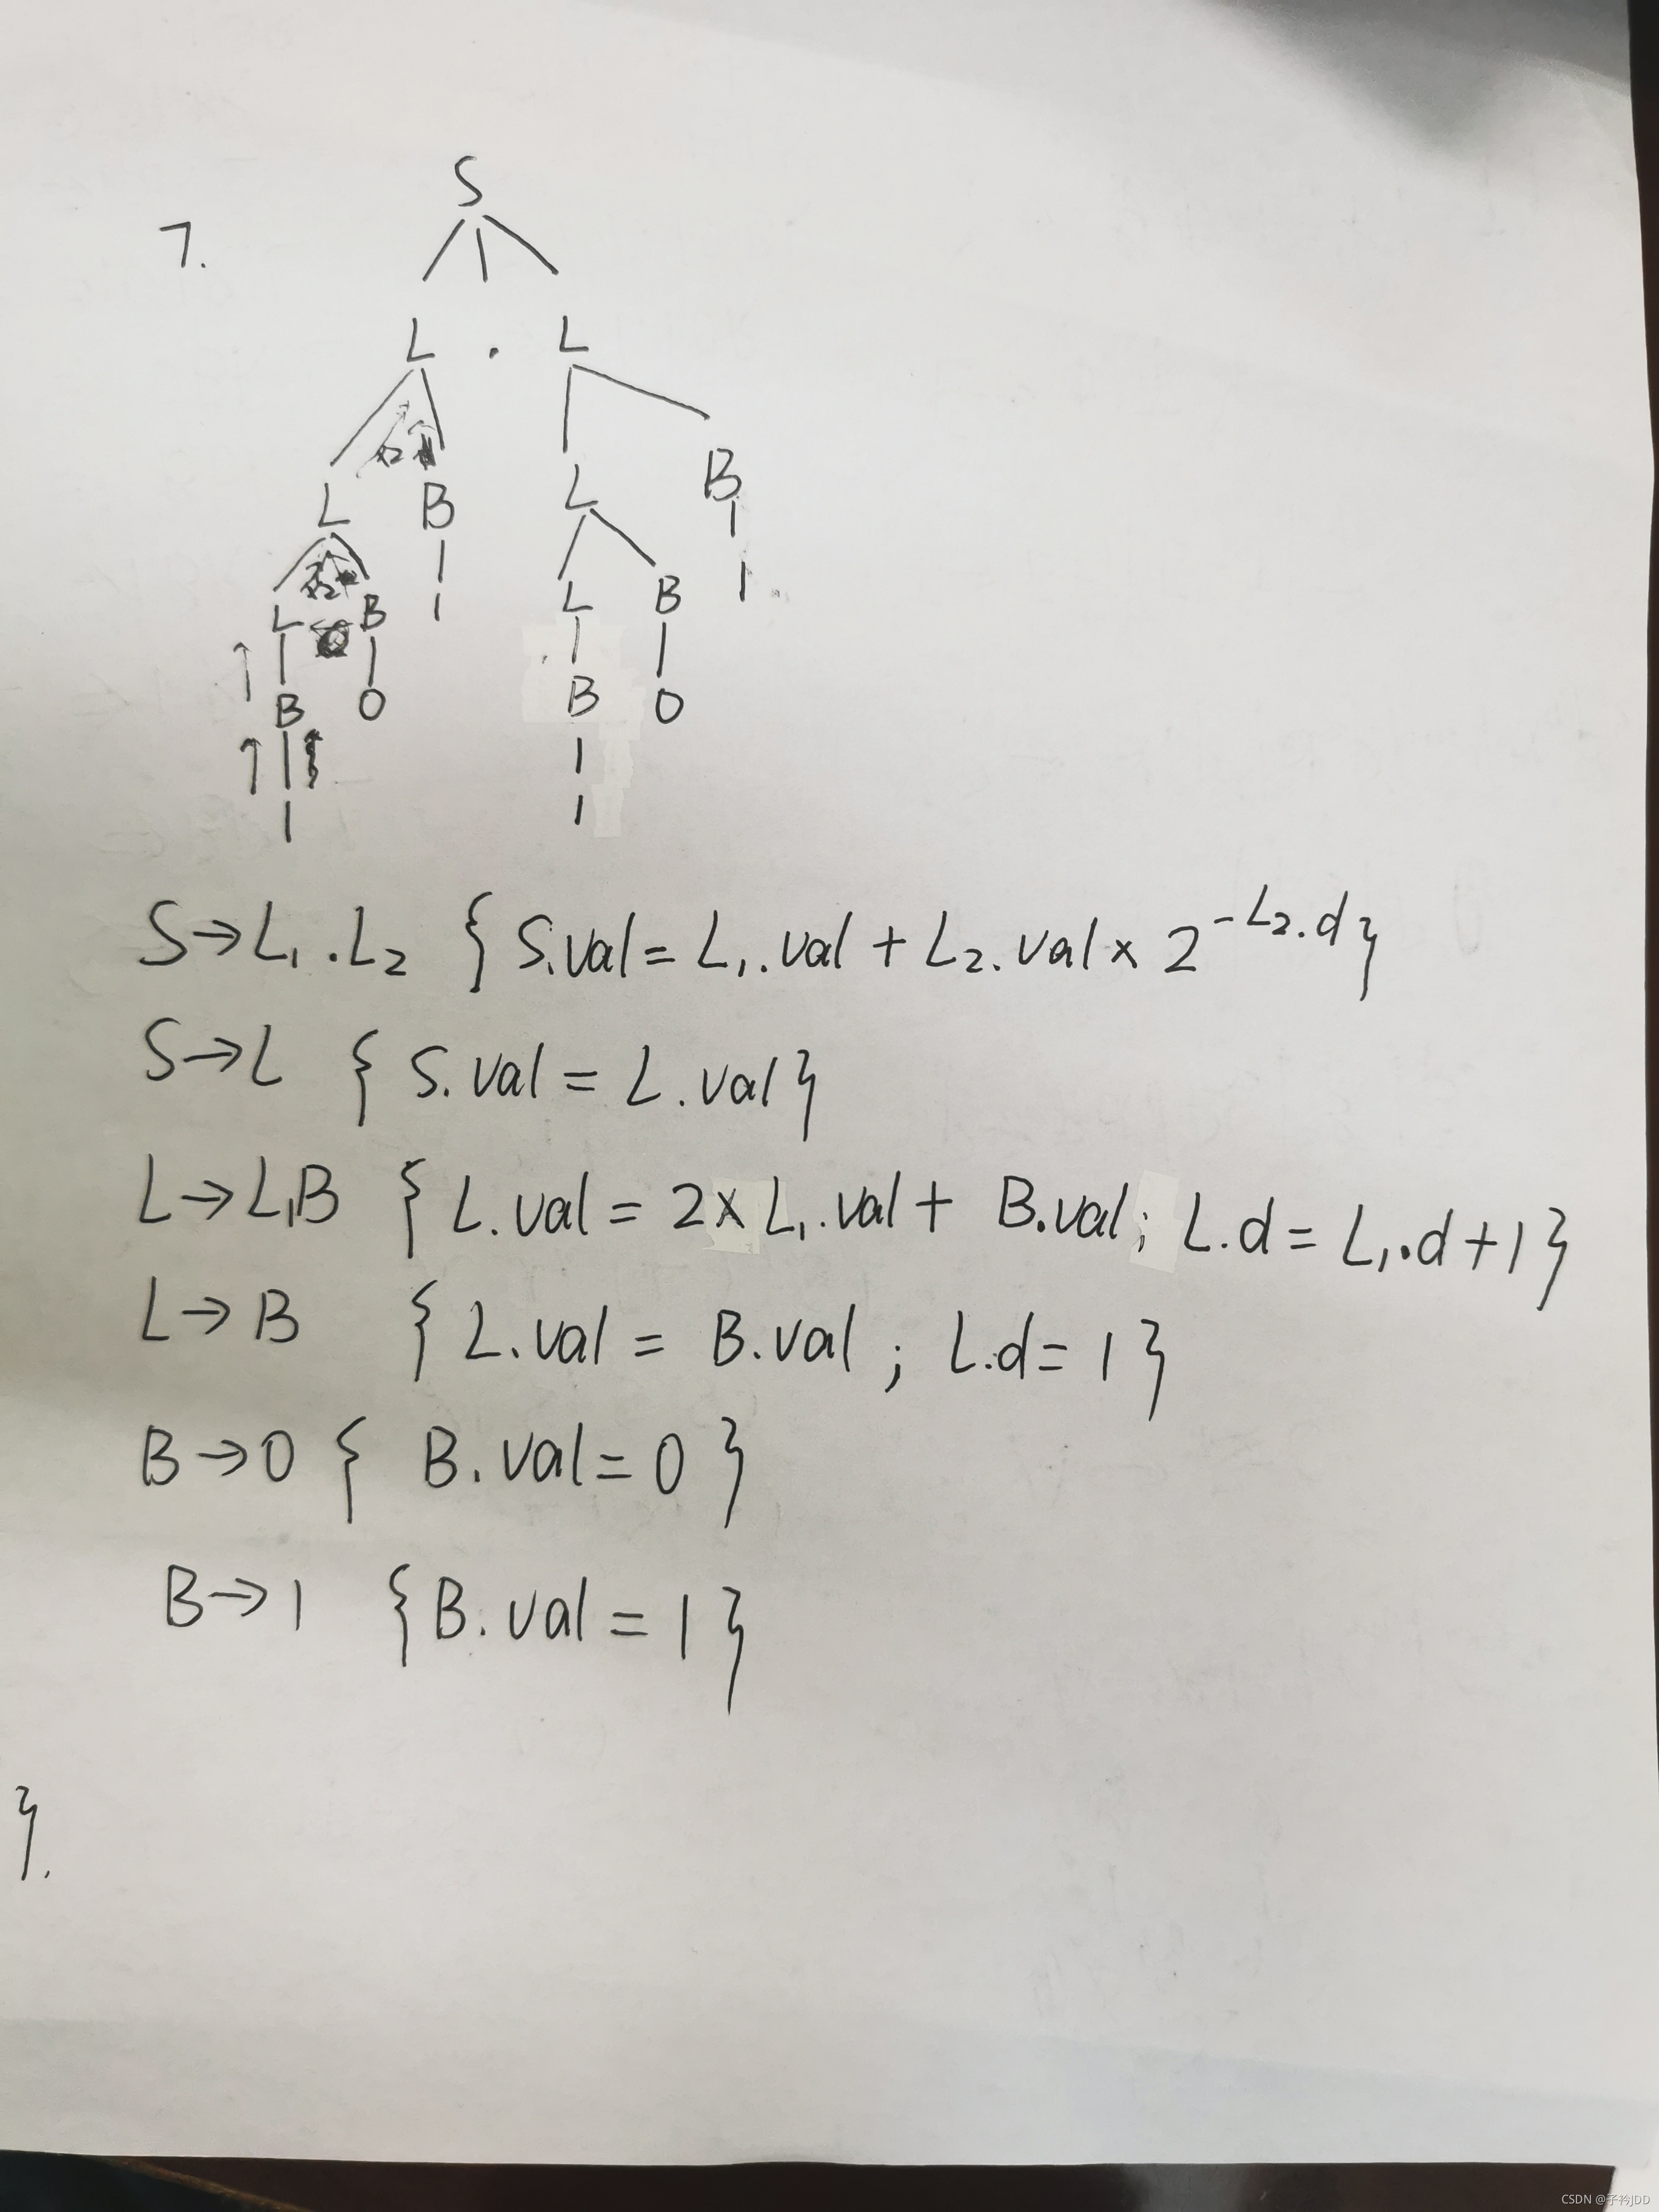 S
7.
L . L
L B L B
L B 1 L B 1
B 0 B 0
1 1
S→L₁.L₂ { S.val = L₁.val + L₂.val × 2^(-L₂.d) }
S→L { S.val = L.val }
L→L₁B { L.val = 2×L₁.val + B.val; L.d = L₁.d+1 }
L→B { L.val = B.val ; L.d = 1 }
B→0 { B.val = 0 }
B→1 { B.val = 1 }
}.
CSDN @子衿JDD